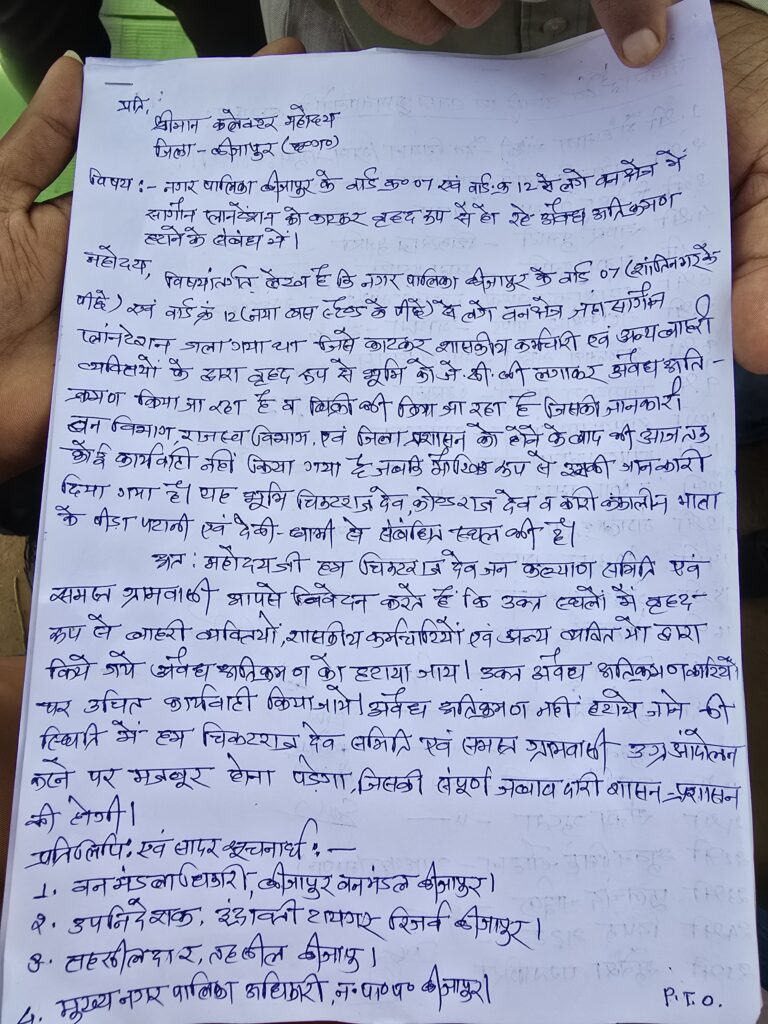 प्रति,
श्रीमान कलेक्टर महोदय
जिला - बीजापुर (छ०ग०)
विषय :- नगर पालिका बीजापुर के वार्ड क्र० 07 एवं वार्ड क्र 12 से लगे वन क्षेत्र में
सागौन प्लानटेशन को काटकर वृहद रूप से हो रहे अवैध अतिक्रमण
हटाने के संबंध में।
महोदय,
विषयांतर्गत लेख है कि नगर पालिका बीजापुर के वार्ड 07 (शांतिनगर के
पीछे) एवं वार्ड क्रं 12 (नया बस स्टैण्ड के पीछे) से लगे वनक्षेत्र जहां सागौन
प्लांनटेशन था जिसे काटकर शासकीय कर्मचारी एवं अन्य बाहरी
व्यक्तियों के द्वारा वृहद रूप से भूमि को जे.सी.बी लगाकर अवैध अति-
क्रमण किया जा रहा है व बिक्री की किया जा रहा है जिसकी जानकारी
वन विभाग, राजस्व विभाग, एवं जिला प्रशासन को होने के बाद भी आज तक
कोई कार्यवाही नहीं किया गया है जबकि मौखिक रूप से इसकी जानकारी
दिया गया है। यह भूमि चिकटराज देव, कोण्डराज देव व कंकालीन माता
के एवं देवी-धामी से संबंधित स्थल की है।
अत: महोदय जी हम चिकटराज देव जन कल्याण समिति एवं
समस्त ग्रामवासी आपसे निवेदन करते हैं कि उक्त स्थलों में वृहद
रूप से बाहरी व्यक्तियों, शासकीय कर्मचारियों एवं अन्य व्यक्तियों द्वारा
किये गये अवैध अतिक्रमण को हटाया जाय। उक्त अवैध अतिक्रमणकारियों
पर उचित कार्यवाही किया जाये। अवैध अतिक्रमण नहीं हटाये जाने की
स्थिति में हम चिकटराज देव समिति एवं समस्त ग्रामवासी उग्र आंदोलन
करने पर मजबूर होना पड़ेगा, जिसकी संपूर्ण जवाबदारी शासन-प्रशासन
की होगी।
प्रतिलिपि: एवं सादर सूचनार्थ :-
1. वन मंडलाधिकारी, बीजापुर वनमंडल बीजापुर।
2. उपनिदेशक, इंद्रावती टायगर रिजर्व बीजापुर।
3. तहसीलदार, तहसील बीजापुर।
4. मुख्य नगर पालिका अधिकारी, न०पा०प० बीजापुर।
P.T.O.